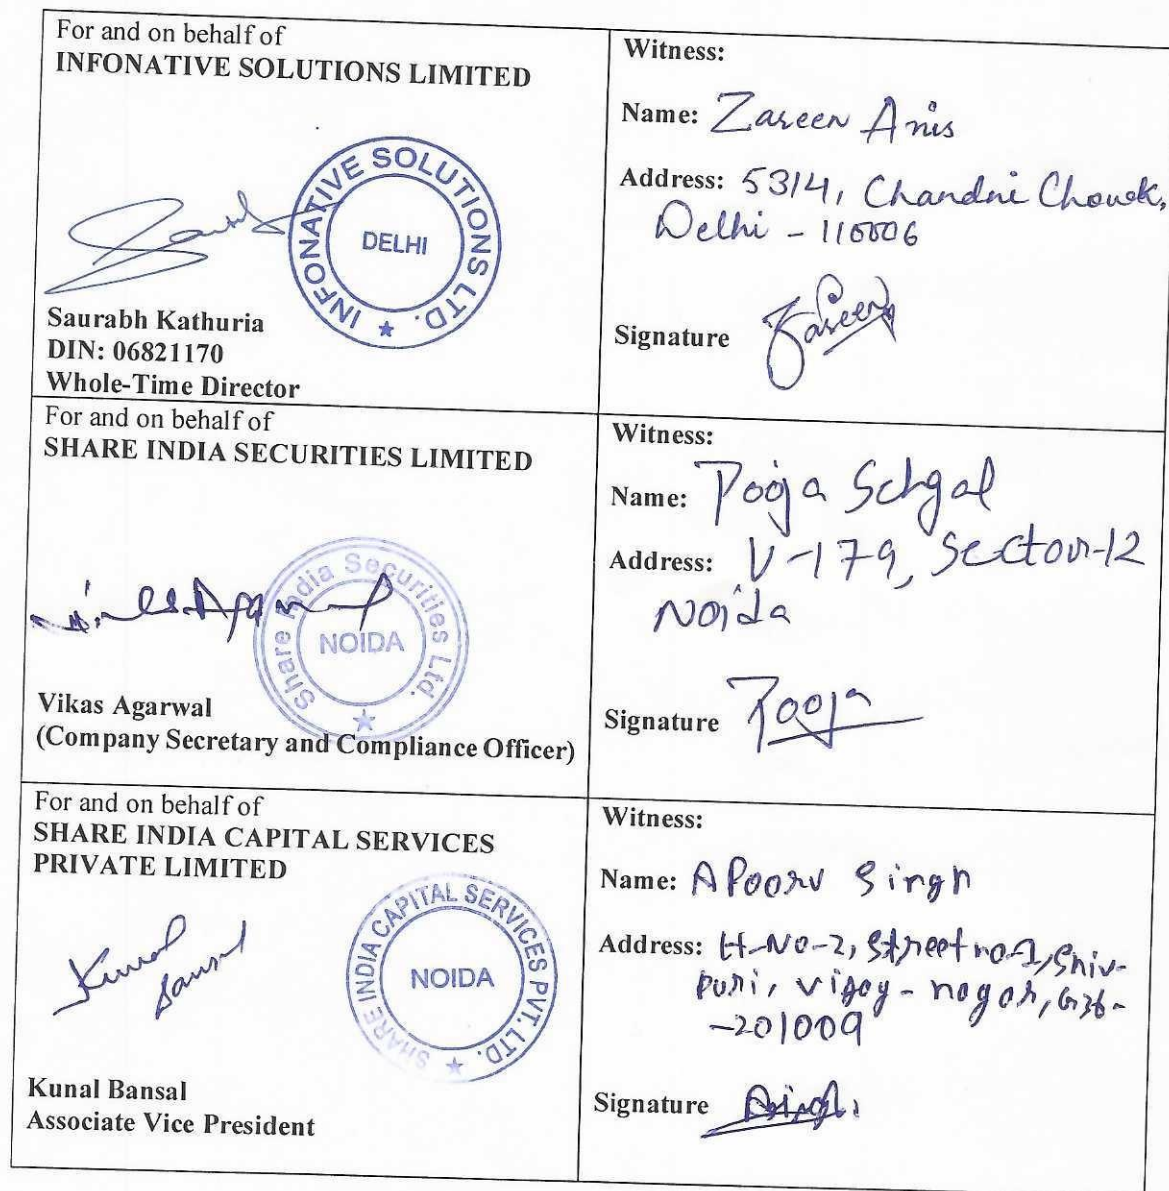 For and on behalf of
INFONATIVE SOLUTIONS LIMITED
INFONATIVE SOLUTIONS LTD.
DELHI
Saurabh Kathuria
DIN: 06821170
Whole-Time Director
Witness:
Name: Zareen Anis
Address: 5314, Chandni Chowk,
Delhi - 110006
Signature Zareen
For and on behalf of
SHARE INDIA SECURITIES LIMITED
Share India Securities Ltd.
NOIDA
Vikas Agarwal
(Company Secretary and Compliance Officer)
Witness:
Name: Pooja Sehgal
Address: V-179, Sector-12
Noida
Signature Pooja
For and on behalf of
SHARE INDIA CAPITAL SERVICES
PRIVATE LIMITED
Kunal
Bansal
SHARE INDIA CAPITAL SERVICES PVT. LTD.
NOIDA
Kunal Bansal
Associate Vice President
Witness:
Name: APoorv Singh
Address: H-No-2, Street no-1, Shiv-
puri, vijay-nagar, GZB-
-201009
Signature